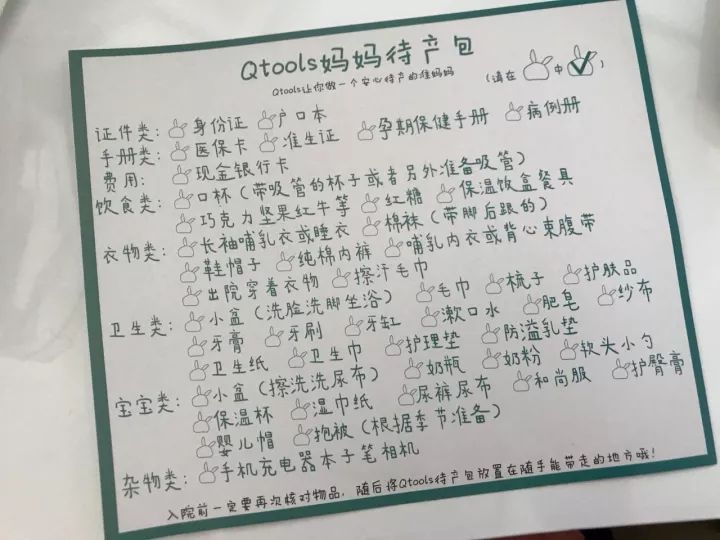 Qtools妈妈待产包
Qtools让你做一个安心待产的准妈妈 (请在 中 )
证件类: 身份证 户口本
手册类: 医保卡 准生证 孕期保健手册 病例册
费用: 现金银行卡
饮食类: 口杯(带吸管的杯子或者另外准备吸管)
巧克力坚果红牛等 红糖 保温饮盒餐具
衣物类: 长袖哺乳衣或睡衣 棉袜(带脚后跟的)
鞋帽子 纯棉内裤 哺乳内衣或背心束腹带
出院穿着衣物 擦汗毛巾
卫生类: 小盆(洗脸洗脚坐浴) 毛巾 梳子 护肤品
牙膏 牙刷 牙缸 漱口水 肥皂 纱布
卫生纸 卫生巾 护理垫 防溢乳垫
宝宝类: 小盆(擦洗洗尿布) 奶瓶 奶粉 软头小勺
保温杯 湿巾纸 尿裤尿布 和尚服 护臀膏
婴儿帽 抱被(根据季节准备)
杂物类: 手机充电器本子笔相机
入院前一定要再次核对物品，随后将Qtools待产包放置在随手能带走的地方哦!